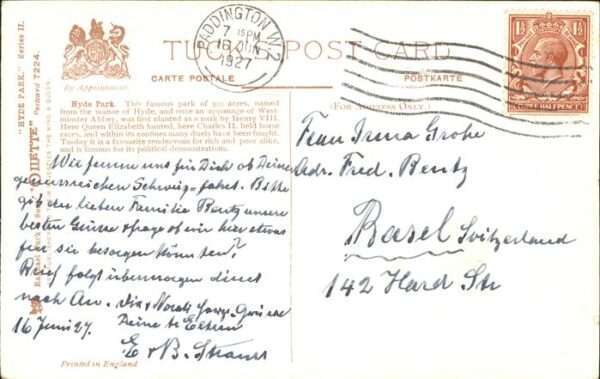 PADDINGTON. W.2
7 15PM
16 JUN
1927
TUCK'S POST CARD
CARTE POSTALE
POSTKARTE
By Appointment
(FOR ADDRESS ONLY.)
1½
1½
THREE HALFPENCE
"HYDE PARK." Series II.
"OILETTE" Postcard 7224.
Hyde Park. This famous park of 390 acres, named
from the manor of Hyde, and once an appanage of West-
minster Abbey, was first planted as a park by Henry VIII.
Here Queen Elizabeth hunted, here Charles II. held horse
races, and within its confines many duels have been fought.
Today it is a favourite rendezvous for rich and poor alike,
and is famous for its political demonstrations.
Wir freuen uns für Dich ob Deiner
genussreichen Schweiz-fahrt. Bitte
gib der lieben Familie Bentz unsere
besten Grüsse & frage ob wir hier etwas
für sie besorgen könnten?
Brief folgt übermorgen direct
nach
16 Juni 27. Deine Eltern
E & B. Strauss
Frau Irma Grohe
Adr. Fred. Bentz
Basel Switzerland
142 Hard Str
Printed in England